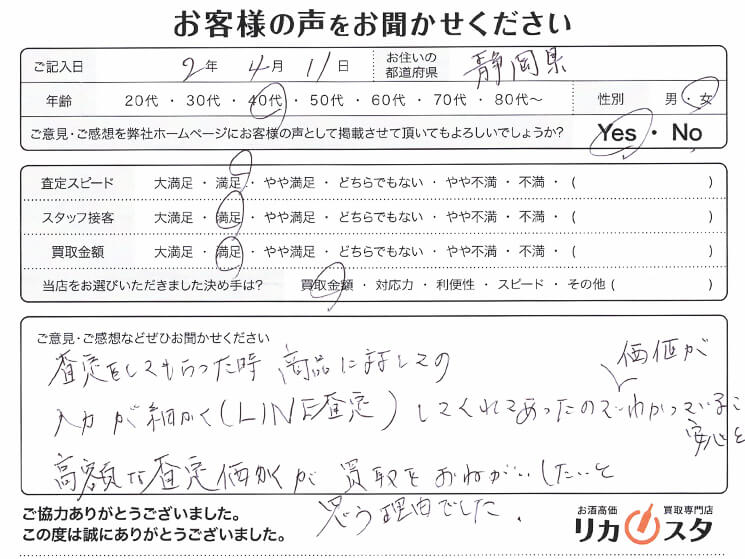 お客様の声をお聞かせください
ご記入日 2年 4月 11日 お住いの都道府県 静岡県
年齢 20代 ・ 30代 ・ 40代 ・ 50代 ・ 60代 ・ 70代 ・ 80代〜 性別 男 ・ 女
ご意見・ご感想を弊社ホームページにお客様の声として掲載させて頂いてもよろしいでしょうか? Yes ・ No
査定スピード 大満足 ・ 満足 ・ やや満足 ・ どちらでもない ・ やや不満 ・ 不満 ・ ( )
スタッフ接客 大満足 ・ 満足 ・ やや満足 ・ どちらでもない ・ やや不満 ・ 不満 ・ ( )
買取金額 大満足 ・ 満足 ・ やや満足 ・ どちらでもない ・ やや不満 ・ 不満 ・ ( )
当店をお選びいただきました決め手は? 買取金額 ・ 対応力 ・ 利便性 ・ スピード ・ その他 ( )
ご意見・ご感想などぜひお聞かせください
査定をしてもらった時 商品に対しての
入力が細かく(LINE査定)してくれてあったので価値がわかっている
安心と
高額な査定価かくが買取をおねがいしたいと
思う理由でした.
ご協力ありがとうございました。
この度は誠にありがとうございました。
お酒高価 買取専門店
リカスタ